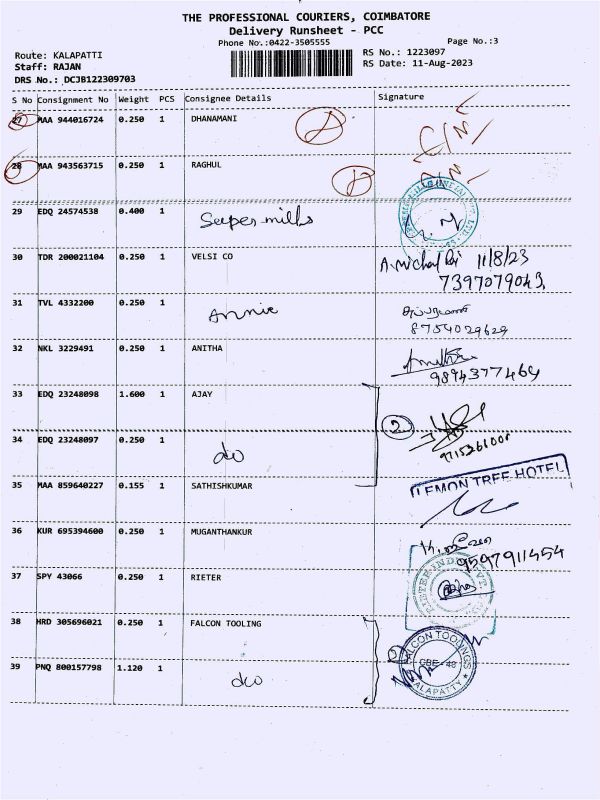 THE PROFESSIONAL COURIERS, COIMBATORE
Delivery Runsheet - PCC
Phone No.:0422-3505555
Page No.:3
Route: KALAPATTI
RS No.: 1223097
Staff: RAJAN
RS Date: 11-Aug-2023
DRS No.: DCJB122309703
S No Consignment No Weight PCS Consignee Details Signature
27 MAA 944016724 0.250 1 DHANAMANI
28 MAA 943563715 0.250 1 RAGHUL
29 EDQ 24574538 0.400 1 Super milks
30 TDR 200021104 0.250 1 VELSI CO 11/8/23
7397079043
31 TVL 4332200 0.250 1 Annie
8754029629
32 NKL 3229491 0.250 1 ANITHA
9894377469
33 EDQ 23248098 1.600 1 AJAY
2
34 EDQ 23248097 0.250 1 do
35 MAA 859640227 0.155 1 SATHISHKUMAR LEMON TREE HOTEL
36 KUR 695394600 0.250 1 MUGANTHANKUR
9597911454
37 SPY 43066 0.250 1 RIETER
38 HRD 305696021 0.250 1 FALCON TOOLING
FALCON TOOLINGS
CBE - 48
KALAPATTY
39 PNQ 800157798 1.120 1 do